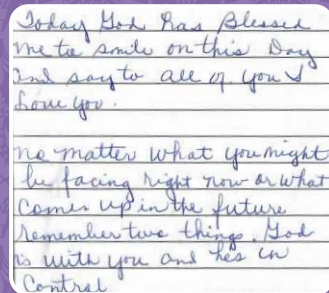 Today God has Blessed
me to smile on this Day
And say to all of you I
Love you.
No matter what you might
be facing right now or what
comes up in the future
remember two things. God
is with you and he's in
Control